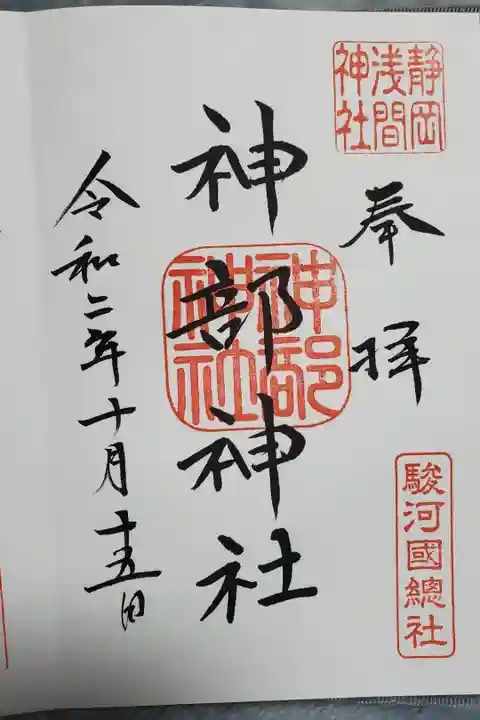 静岡
浅間
神社
奉拝
駿河國總社
神部神社
神部
神社
令和二年十月十五日